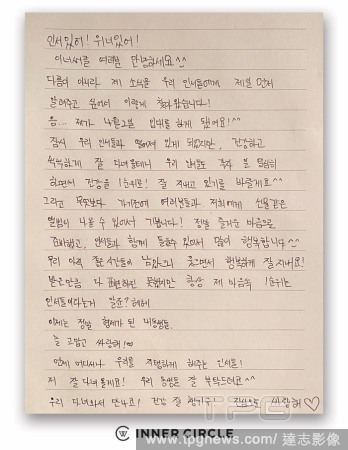 인서있어! 위너있어!
이너써클 여러분 안녕하세요^^
다름이 아니라 제 소식을 우리 인서들에게 제일 먼저
알려주고 싶어서 이렇게 찾아왔습니다!
음... 제가 4월 2일 입대를 하게 됐어요!^^
잠시 우리 인서들과 떨어져 있게 되었지만, 건강하고
씩씩하게 잘 다녀올테니 우리 인서들도 각자 할 일들
하면서 건강을 1순위로! 잘 지내고 있기를 바랄게요^^
그리고 무엇보다 가기전에 여러분들과 저희에게 선물같은
앨범이 나올 수 있어서 기쁩니다! 정말 즐거운 마음으로
준비했고, 인서들과 함께 들을수 있어서 많이 행복합니다^^
우리 아직 좋은 시간들이 남았으니 웃으면서 행복하게 잘 지내요!
받은만큼 다 표현하진 못했지만 항상 제 마음속 1순위는
인서들이라는거 알죠? 헤헤
이제는 정말 형제가 된 내 동생들.
늘 고맙고 사랑해!∞
언제 어디서나 우리를 지탱하게 해주는 인서들!
저 잘 다녀올게요! 우리 동생들 잘 부탁드려요^^
우리 다녀와서 만나요! 건강 잘 챙기구 진심으로 사랑해♡
INNER CIRCLE
TPG
www.tpgnews.com/達志影像